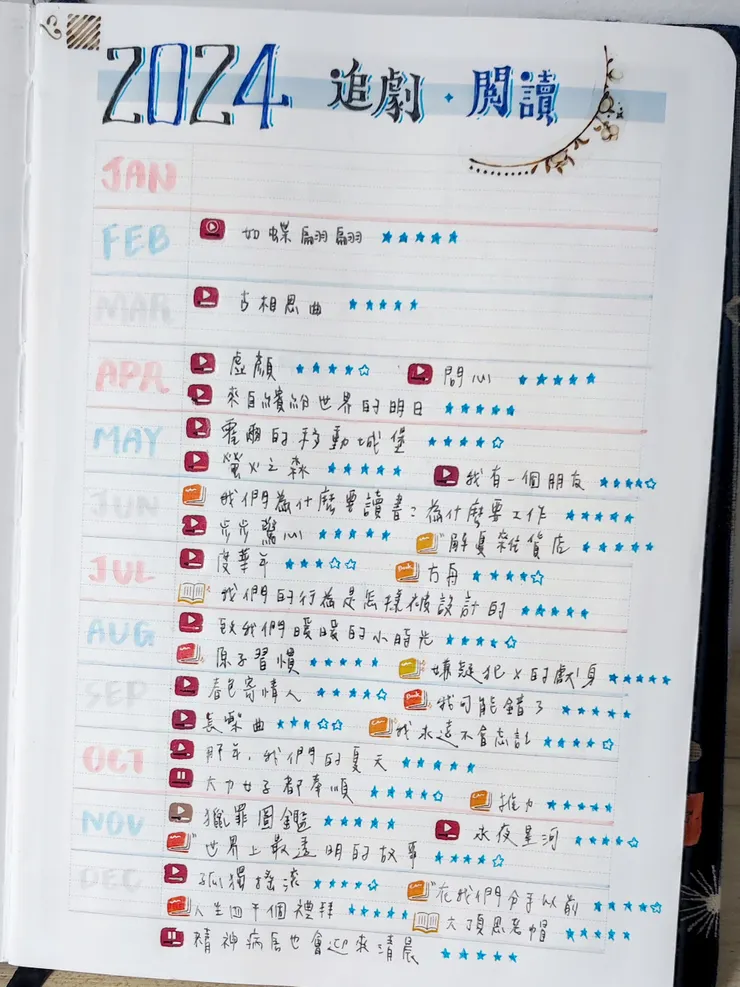 2024 追劇・閱讀
JAN
FEB
如蝶翩翩 ★★★★★
MAR
古相思曲 ★★★★★
APR
虛顏 ★★★★☆ 問心 ★★★★★
來自繽紛世界的明日 ★★★★★
MAY
霍爾的移動城堡 ★★★★☆
螢火之森 ★★★★★ 我有一個朋友 ★★★★☆
JUN
我們為什麼要讀書?為什麼要工作 ★★★★★
步步驚心 ★★★★★ 解憂雜貨店 ★★★★★
JUL
度華年 ★★★☆☆ 方舟 ★★★★☆
我們的行為是怎樣被設計的 ★★★★★
AUG
致我們暖暖的小時光 ★★★★☆
原子習慣 ★★★★★ 嫌疑犯X的獻身 ★★★★★
SEP
春色寄情人 ★★★★☆ 我可能錯了 ★★★★★
長樂曲 ★★★☆☆ 我永遠不會忘記 ★★★★☆
OCT
那年,我們的夏天 ★★★★★
大力女子都奉順 ★★★★☆ 推力 ★★★★★
NOV
獵罪圖鑑 ★★★★★ 永夜星河 ★★★★☆
世界上最透明的故事 ★★★★☆
DEC
孤獨搖滾 ★★★★☆ 在我們分手以前 ★★★★☆
人生四千個禮拜 ★★★★★ 六頂思考帽 ★★★★★
精神病房也會迎來清晨 ★★★★★